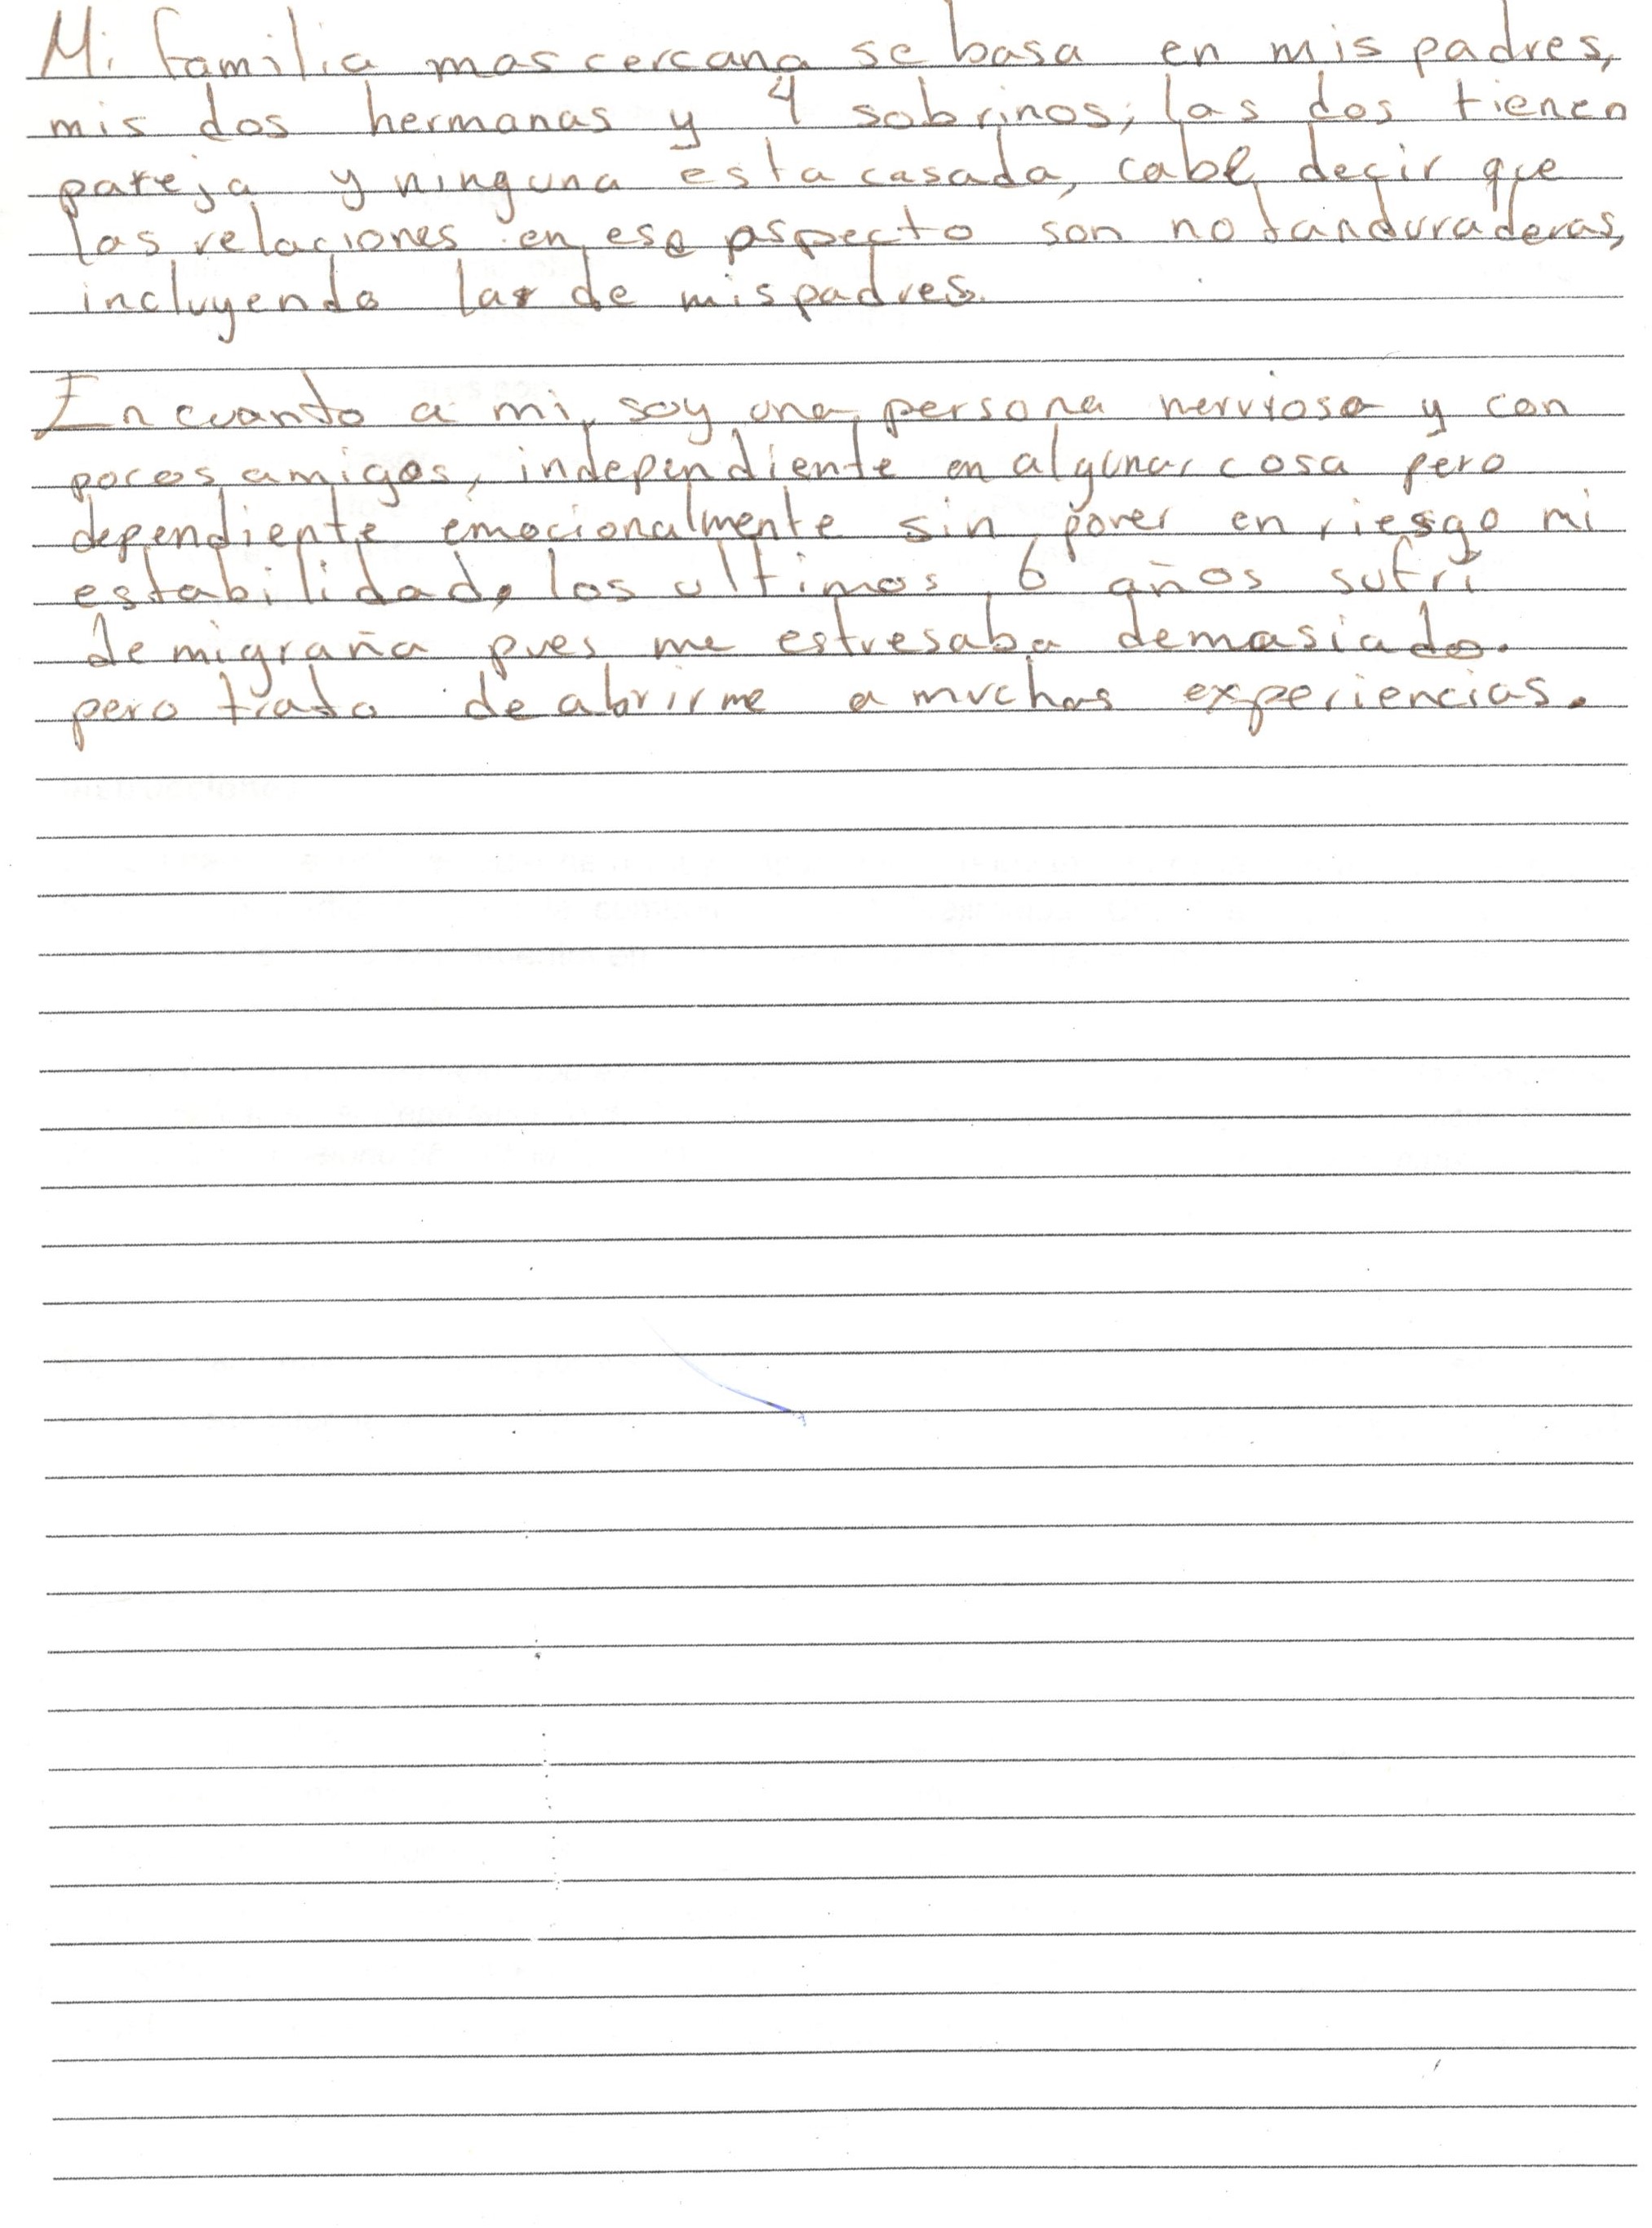 Mi familia mas cercana se basa en mis padres,
mis dos hermanas y 4 sobrinos; las dos tienen
pareja y ninguna esta casada, cabe decir que
las relaciones en ese aspecto son no tan duraderas,
incluyendo las de mis padres.
En cuanto a mi, soy una persona nerviosa y con
pocos amigos, independiente en algunas cosa pero
dependiente emocionalmente sin poner en riesgo mi
estabilidad, los ultimos 6 años sufri
de migraña pues me estresaba demasiado.
pero trato de abrirme a muchas experiencias.